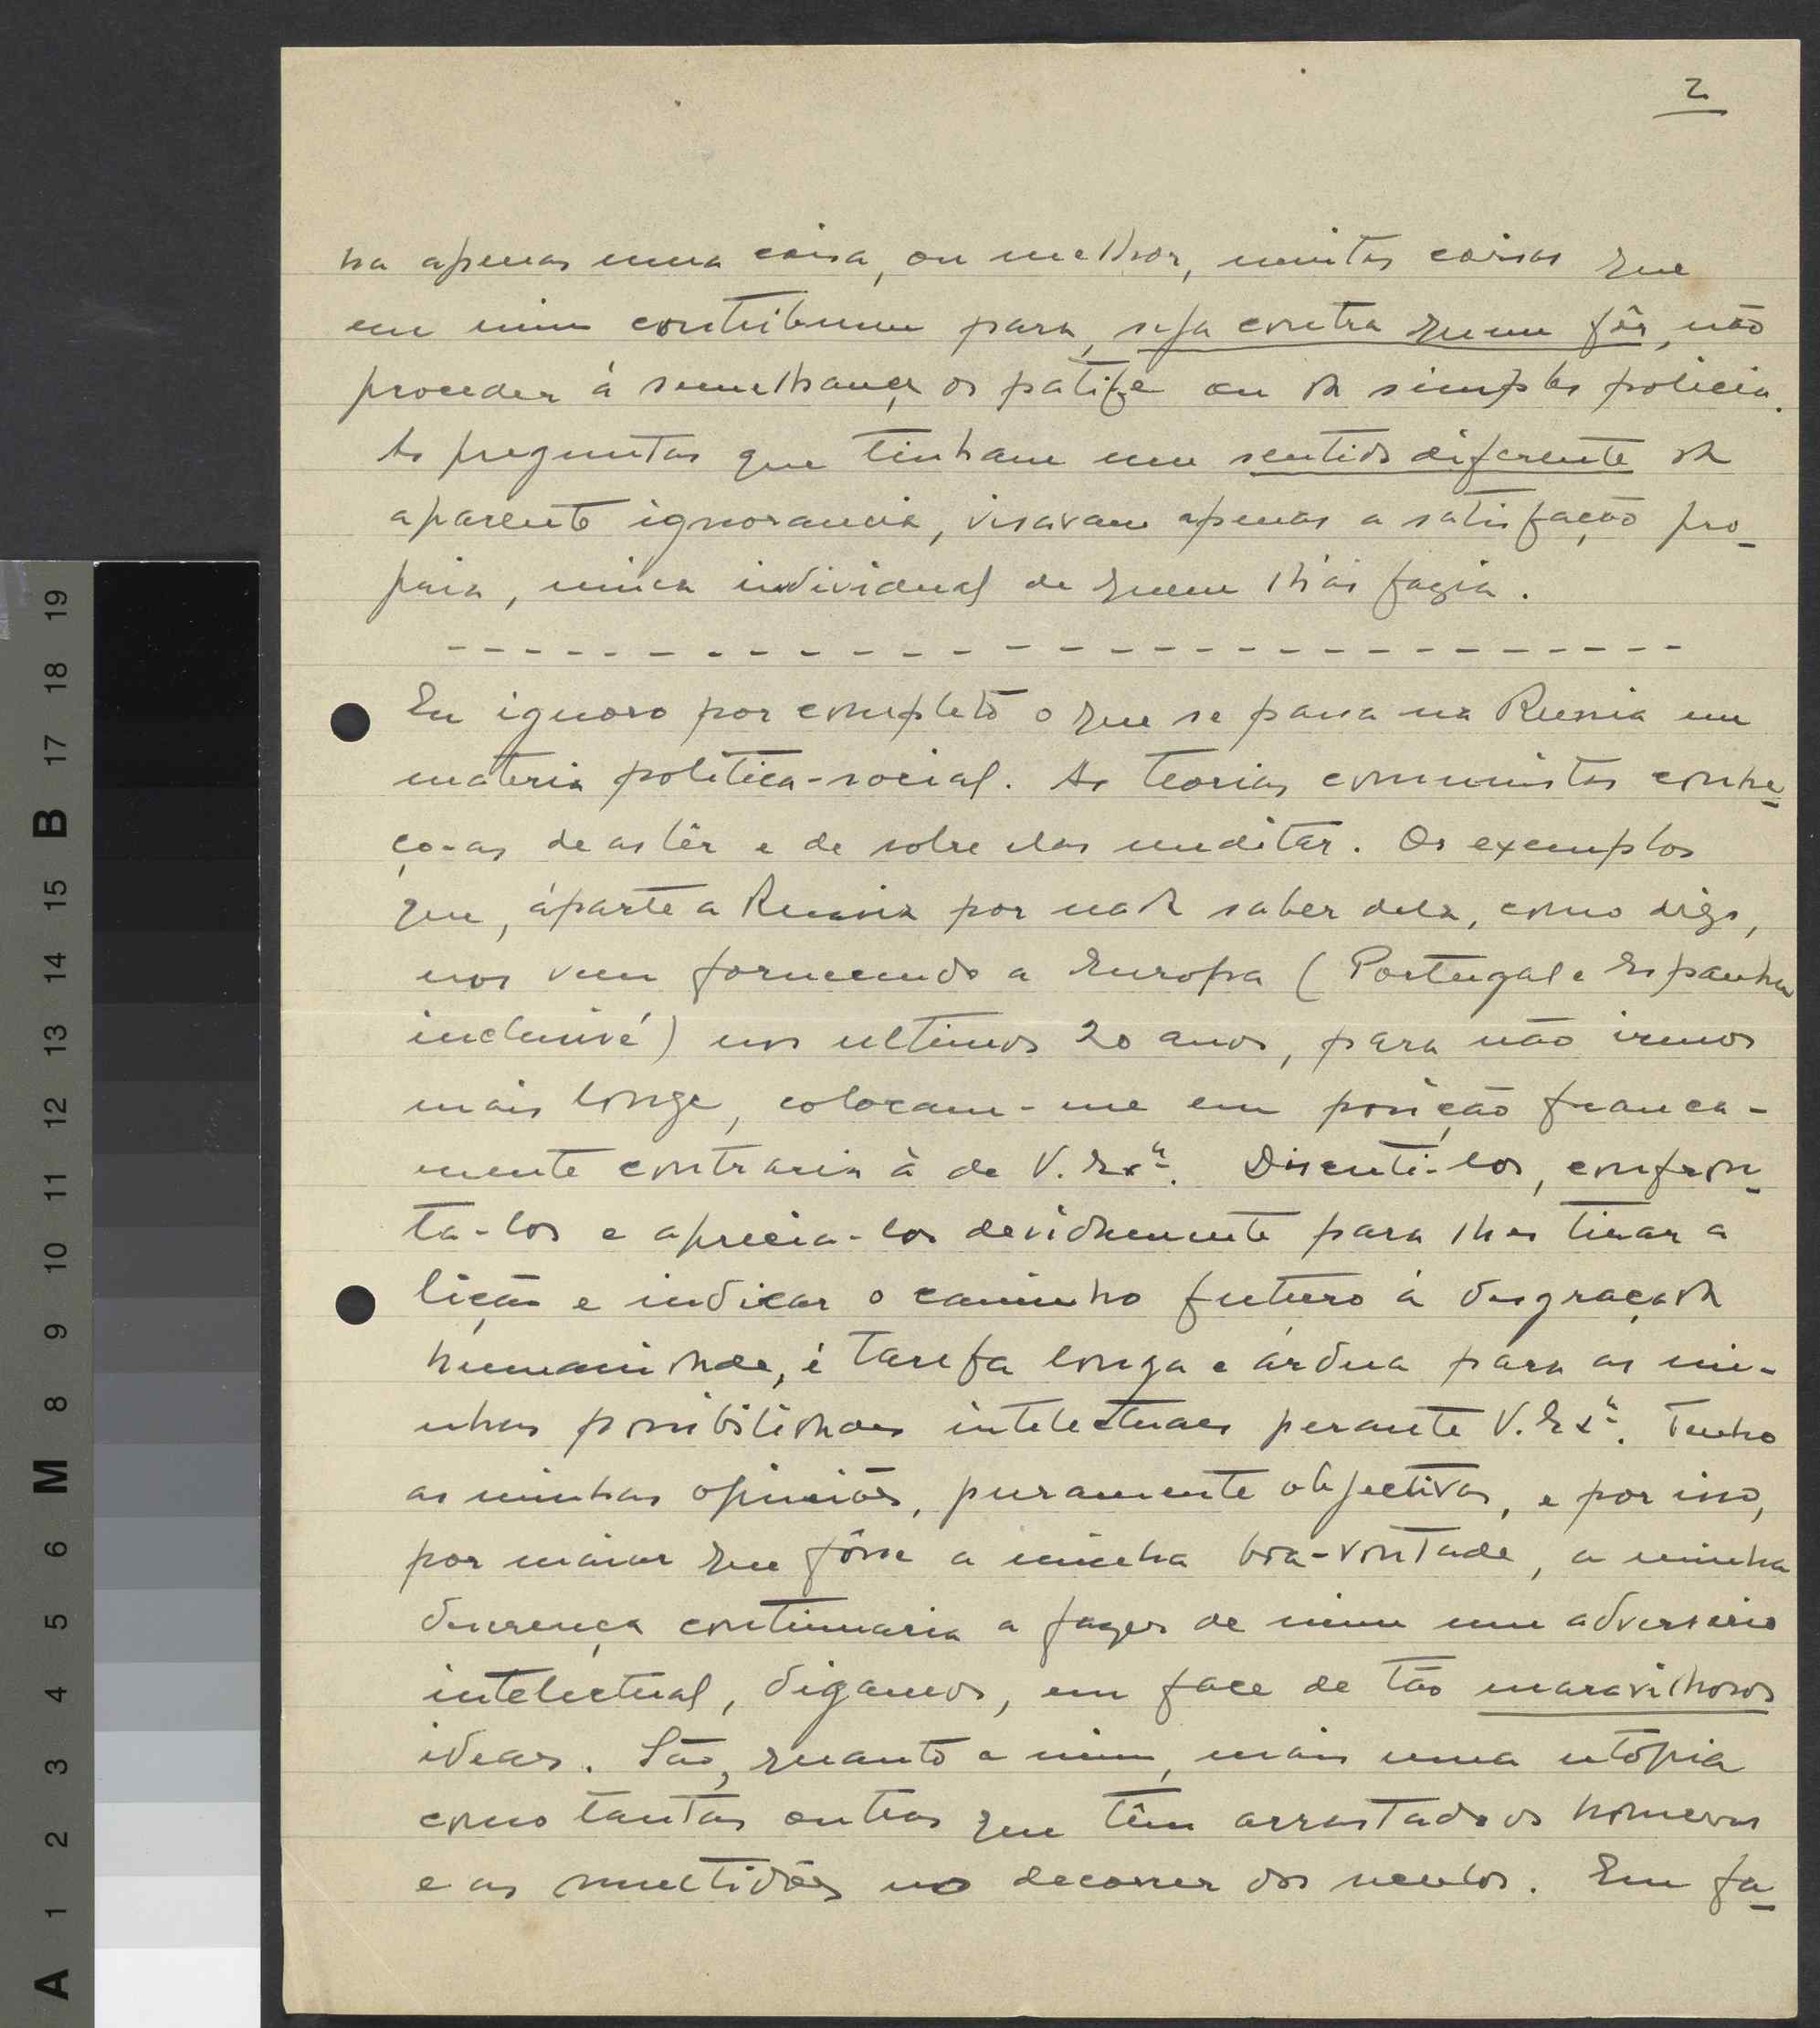 2
ha apenas uma coisa, ou melhor, muitas coisas que
em mim contribuem para, seja contra quem fôr, não
proceder á semelhança do patife ou da simples policia.
As preguntas que tinham um sentido diferente da
aparente ignorancia, visavam apenas a satisfação pro-
pria, unica individual de quem lh'as fazia.
Eu ignoro por completo o que se passa na Russia em
materia politica-social. As teorias comunistas conhe-
ço-as de as lêr e de sobre elas meditar. Os exemplos
que, áparte a Russia por nada saber dela, como digo,
nos vem fornecendo a Europa (Portugal e Espanha
inclusivé) nos ultimos 20 anos, para não irmos
mais longe, colocam-me em posição franca-
mente contraria à de V. Exª. Discuti-los, confron-
ta-los e aprecia-los devidamente para lhes tirar a
lição e indicar o caminho futuro á desgraçada
humanidade, é tarefa longa e árdua para as mi-
nhas possibilidades intelectuaes perante V. Exª. Tenho
as minhas opiniões, puramente objectivas, e por isso,
por maior que fôsse a minha boa-vontade, a minha
descrença continuaria a fazer de mim um adversario
intelectual, digamos, em face de tão maravilhosos
ideaes. São, quanto a mim, mais uma utópia
como tantas outras que têm arrastado os homens
e as multidões no decorrer dos seculos. Em fa-
A 1 2 3 4 5 6 M 8 9 10 11 12 13 14 15 B 17 18 19